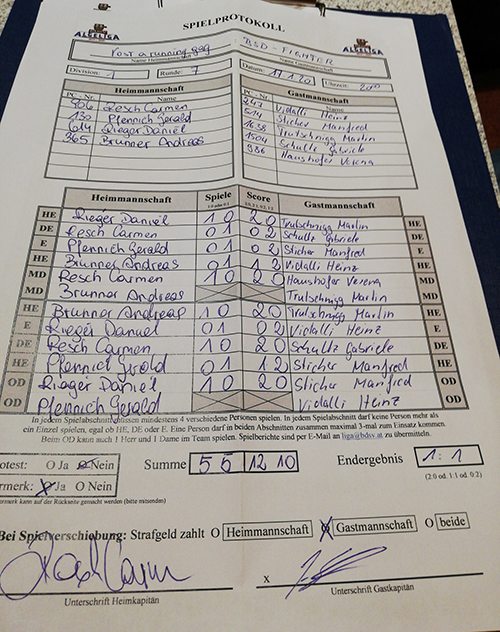 SPIELPROTOKOLL
Name Heimmannschaft
BSD - FIGHTER
Name Gastmannschaft
Division: 1 Runde: 7 Datum: 11.1.20 Uhrzeit:
Heimmannschaft Gastmannschaft
PC - Nr. Name PC - Nr. Name
906 Resch Carmen 243 Vidalli Heinz
130 Pfennich Gerald Sticher Manfred
614 Rieger Daniel 1638 Trutschnigg Martin
365 Brunner Andreas 1504 Schultz Gabriele
986 Haushofer Verena
Heimmannschaft Spiele Score Gastmannschaft
HE Rieger Daniel 1 0 2 0 Trutschnigg Martin HE
DE Resch Carmen 0 1 0 2 Schultz Gabriele DE
E Pfennich Gerald 0 1 0 2 Sticher Manfred E
HE Brunner Andreas 0 1 1 2 Vidalli Heinz HE
MD Resch Carmen 1 0 2 0 Haushofer Verena MD
MD Brunner Andreas Trutschnigg Martin MD
HE Brunner Andreas 1 0 2 0 Trutschnigg Martin HE
E Rieger Daniel 0 1 0 2 Vidalli Heinz E
DE Resch Carmen 1 0 2 0 Schultz Gabriele DE
HE Pfennich Gerald 0 1 1 2 Sticher Manfred HE
OD Rieger Daniel 1 0 2 0 Sticher Manfred OD
OD Pfennich Gerald Vidalli Heinz OD
In jedem Spielabschnitt müssen mindestens 4 verschiedene Personen spielen. In jedem Spielabschnitt darf keine Person mehr als
ein Einzel spielen, egal ob HE, DE oder E. Eine Person darf in beiden Abschnitten zusammen maximal 3-mal zum Einsatz kommen.
Beim OD kann auch 1 Herr und 1 Dame im Team spielen. Spielberichte sind per E-Mail an liga@bdsv.at zu übermitteln.
otest: O Ja O Nein Summe 5 5 12 10 Endergebnis 1 : 1
merk: O Ja O Nein (2:0 od. 1:1 od. 0:2)
ermerk kann auf der Rückseite gemacht werden (bitte mitsenden)
Bei Spielverschiebung: Strafgeld zahlt O Heimmannschaft O Gastmannschaft O beide
X
Unterschrift Heimkapitän Unterschrift Gastkapitän